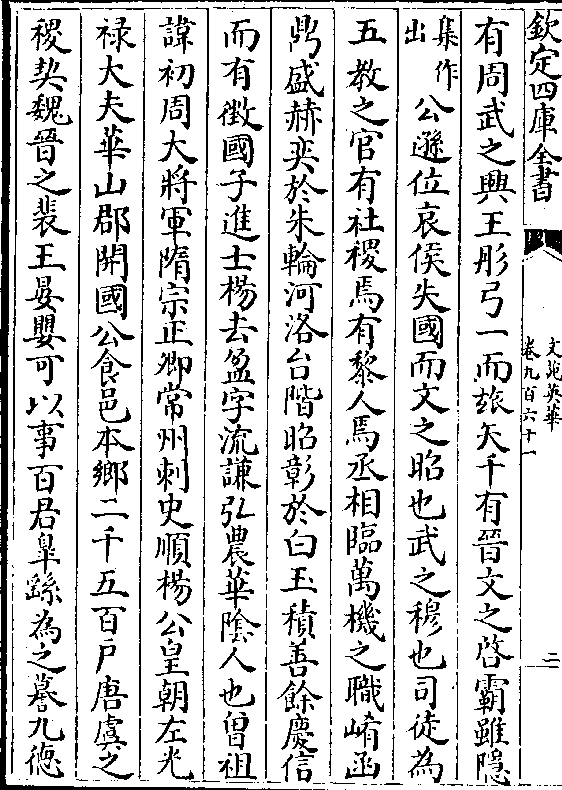 欽定四庫全書
文苑英華
卷九百六十一
二
有周武之興王彤弓一而旅矢千有晉文之啓霸雖隱
集作
出
公遜位哀侯失國而文之昭也武之穆也司徒為
五教之官有社稷焉有黎人焉丞相臨萬機之職崤函
鼎盛赫奕於朱輪河洛台階昭彰於白玉積善餘慶信
而有徵國子進士楊去盈字流謙弘農華陰人也曾祖
諱初周大將軍隋宗正卿常州刺史順楊公皇朝左光
禄大夫華山郡開國公食邑本鄉二千五百戸唐虞之
稷契魏晉之裴王晏嬰可以事百君臯繇為之謩九徳